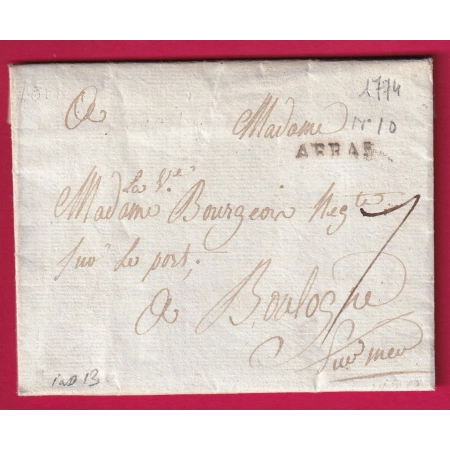 1774
A Madame
N° 10
ARRAS
La V.e
Madame Bourgeois Neg.te
sur le port,
A Boulogne
sur mer
7
ind 13